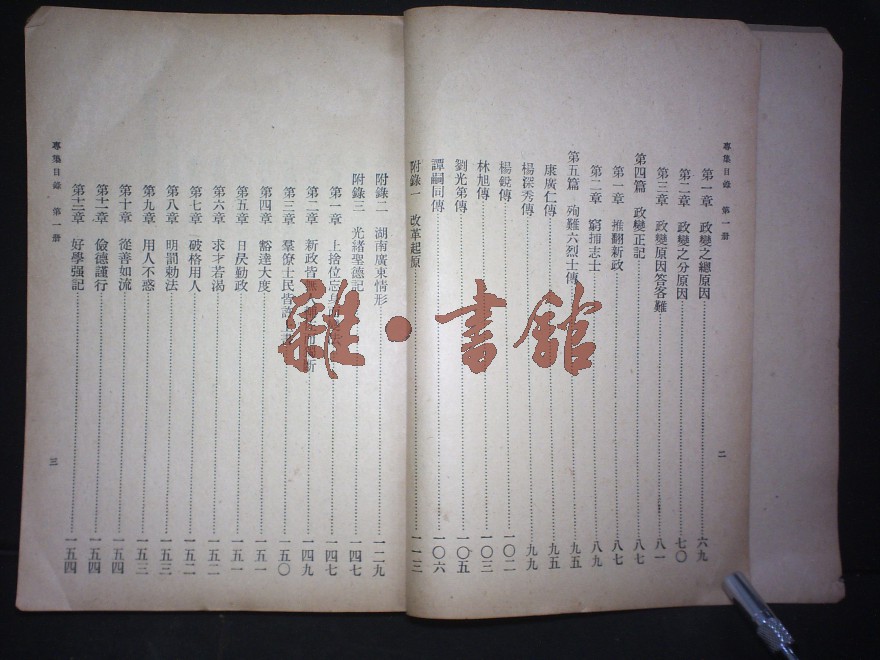 專集目錄　第一册
二
第一章　政變之總原因……六九
第二章　政變之分原因……七〇
第三章　政變原因答客難……八一
第四篇　政變正記……八七
第一章　推翻新政……八七
第二章　窮捕志士……八九
第五篇　殉難六烈士傳……九五
康廣仁傳……九五
楊深秀傳……九九
楊銳傳……一〇二
林旭傳……一〇三
劉光第傳……一〇五
譚嗣同傳……一〇六
附錄一　改革起原……一一三
附錄二　湖南廣東情形……一二九
附錄三　光緒聖德記……一四七
第一章　上捨位忘身……一四七
第二章　新政皆……新……一四九
第三章　羣僚士民皆許……一五〇
第四章　豁達大度……一五一
第五章　日昃勤政……一五一
第六章　求才若渴……一五二
第七章　破格用人……一五二
第八章　明罰勅法……一五三
第九章　用人不惑……一五三
第十章　從善如流……一五四
第十一章　儉德謹行……一五四
第十二章　好學强記……一五四
專集目錄　第一册
三
雜·書館